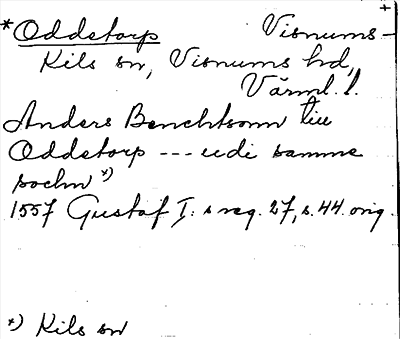 *Oddstorp Visnums-
Kils sn, Visnums hd,
Värml. l.
Anders Benchtsonn till
Oddstorp --- udi samme
sochn *)
1557 Gustaf I:s reg. 27, s. 44. orig.
*) Kils sn